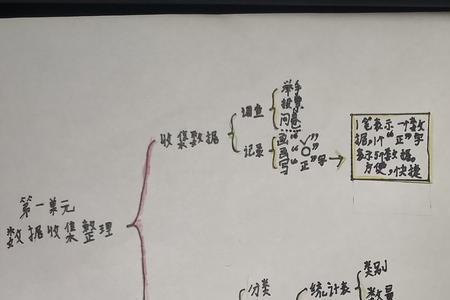 第一单元
数据收集整理
收集数据
调查
举手
问卷
记录
画“✓”
画“○”
写“正”字
1笔表示一个数
据,1个“正”字
表示5个数据,
方便,快捷
分类
统计表
类别
数量